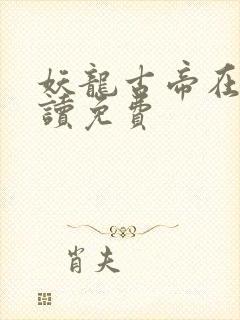 妖龍古帝在
讀免費
肖夫